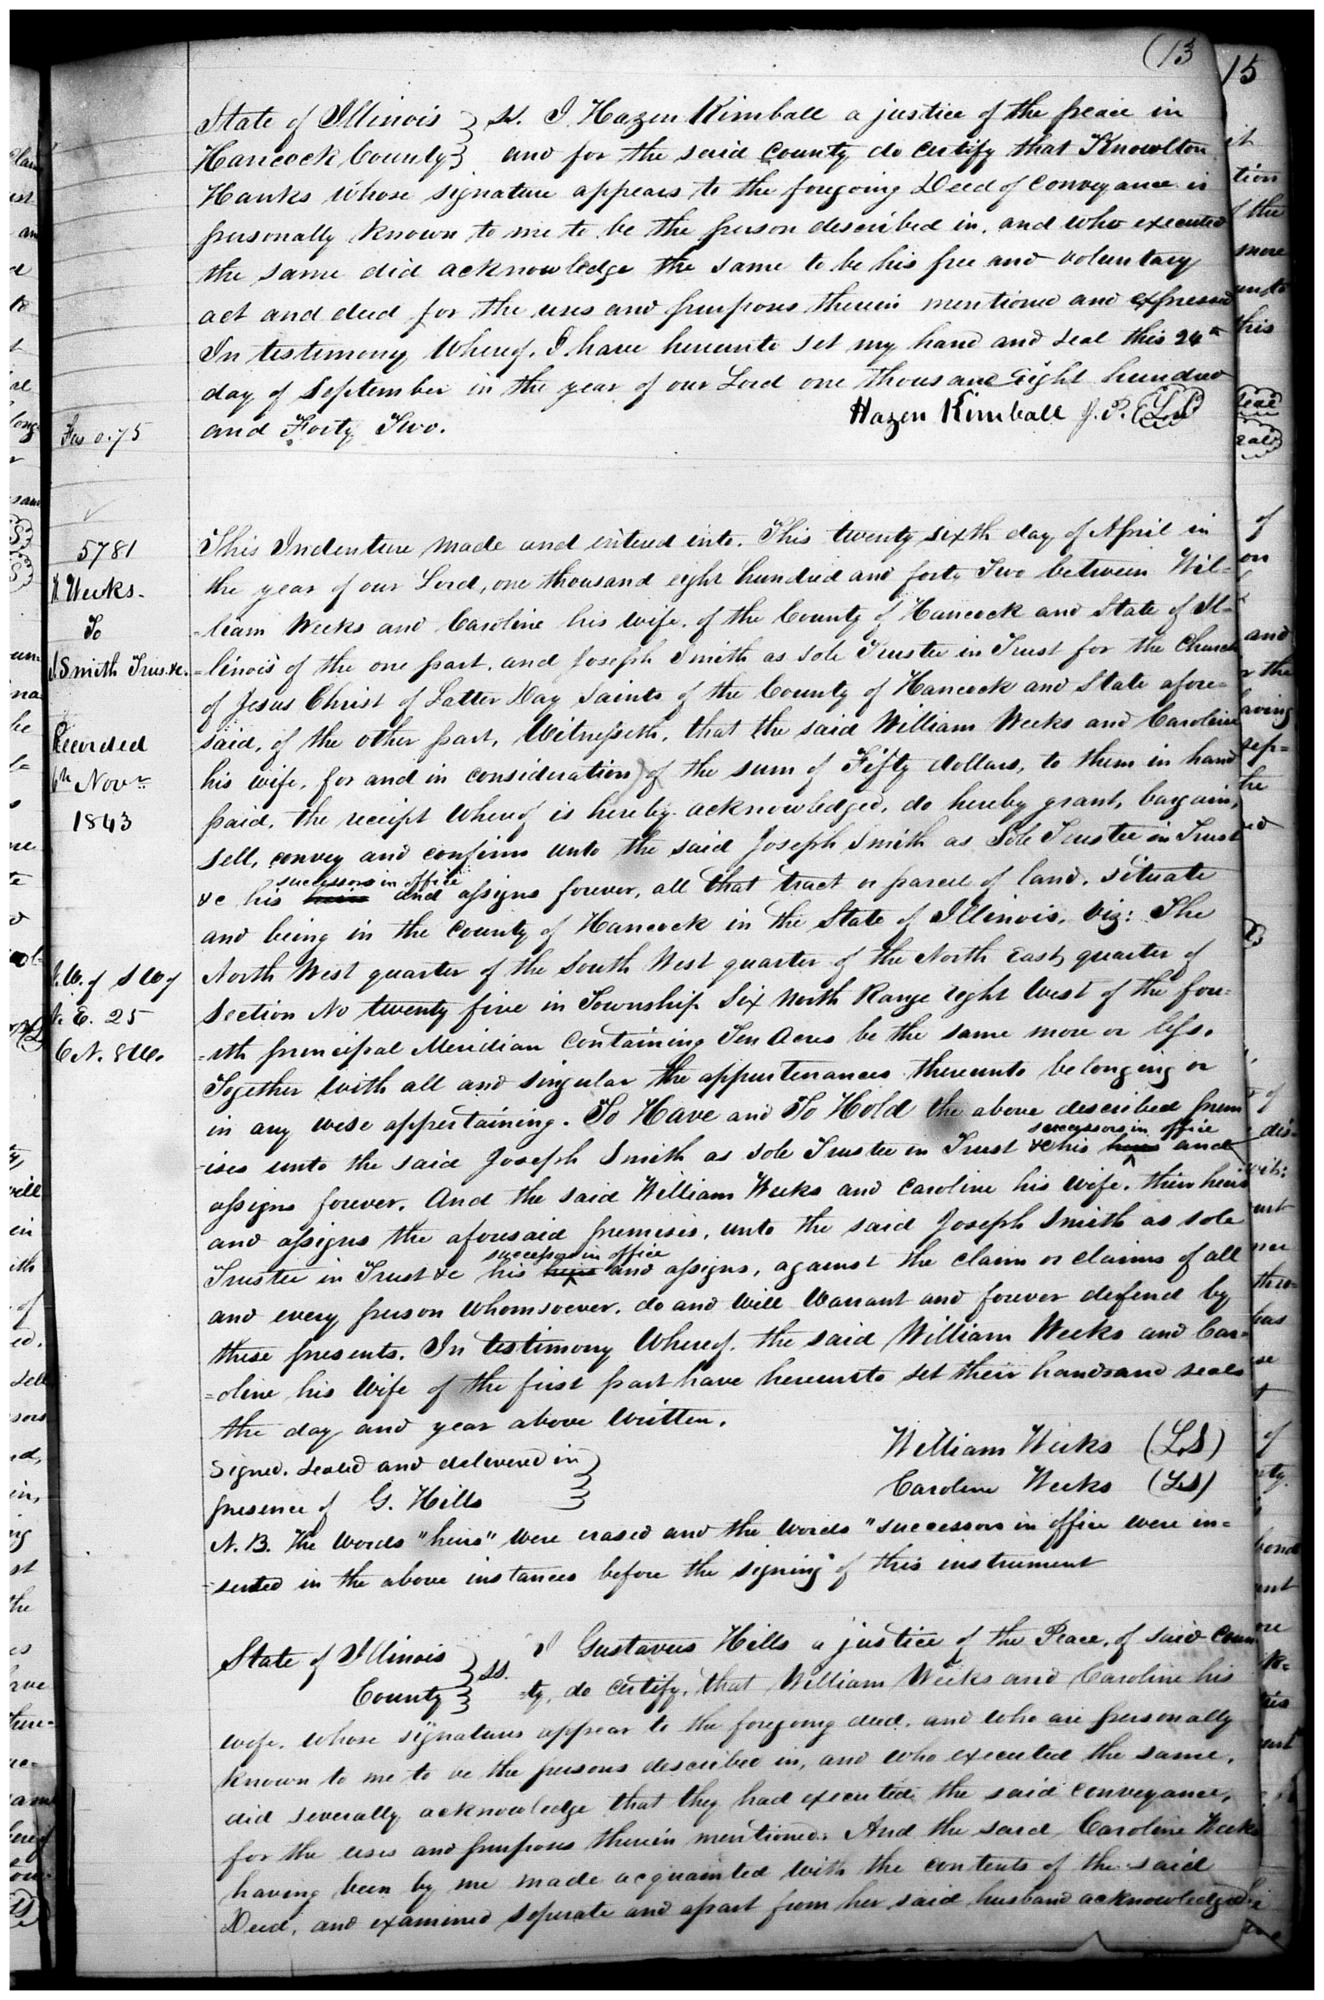 (13
State of Illinois } ss. I Hazen Kimball a justice of the peace in
Hancock County } and for the said County do certify that Knowlton
Hanks whose signature appears to the foregoing Deed of conveyance is
personally known to me to be the person described in, and who executed
the same did acknowledge the same to be his free and voluntary
act and deed for the uses and purposes therein mentioned and expressed
In testimony Whereof, I have hereunto set my hand and seal this 24th
day of September in the year of our Lord one thousand Eight hundred
and Forty Two.
Hazen Kimball J.P. (LS)
Fees 0.75
5781
W Weeks.
To
J. Smith Trus. &c.
Recorded
6th Novr
1843
This Indenture made and entered into. This twenty sixth day of April in
the year of our Lord, one thousand eight hundred and forty Two between Wil-
-liam Weeks and Caroline his wife, of the County of Hancock and State of Il-
-linois of the one part, and Joseph Smith as sole Trustee in Trust for the Church
of Jesus Christ of Latter Day Saints of the County of Hancock and State afore-
said, of the other part, Witnesseth, that the said William Weeks and Caroline
his wife, for and in consideration of the sum of Fifty dollars, to them in hand
paid, the receipt whereof is hereby acknowledged, do hereby grant, bargain,
sell, convey and confirm unto the said Joseph Smith as Sole Trustee in Trust
successors in office
&c his heirs and assigns forever, all that tract or parcel of land, situate
and being in the County of Hancock in the State of Illinois, Viz: The
N.W. of S W of
N. E. 25
6 N. 8 W.
North West quarter of the South West quarter of the North East quarter of
Section No twenty five in Township Six North Range Eight West of the fou-
-rth principal Meridian Containing Ten Acres be the same more or less.
Together with all and singular the appurtenances thereunto belonging or
in any wise appertaining. To Have and To Hold the above described prem
successors in office
-ises unto the said Joseph Smith as Sole Trustee in Trust &c his heirs and
assigns forever. And the said William Weeks and Caroline his wife, their heirs
and assigns the aforesaid premises, unto the said Joseph Smith as sole
successors in office
Trustee in Trust &c his heirs and assigns, against the claim or claims of all
and every person whomsoever, do and will Warrant and forever defend by
these presents. In testimony Whereof, the said William Weeks and Car-
-oline his Wife of the first part have hereunto set their hands and seals
the day and year above Written.
William Weeks (LS)
Signed, Sealed and delivered in }
Caroline Weeks (LS)
presence of G. Hills }
N.B. The words "heirs" were erased and the words "successors in office were in-
-serted in the above instances before the signing" of this instrument
State of Illinois } ss. I Gustavus Hills a justice of the Peace, of said Coun
County } -ty, do certify, that William Weeks and Caroline his
wife, whose signatures appear to the foregoing deed, and who are personally
known to me to be the persons described in, and who executed the same,
did severally acknowledge that they had executed the said conveyance,
for the uses and purposes therein mentioned. And the said Caroline Weeks
having been by me made acquainted with the contents of the said
Deed, and examined seperate and apart from her said husband acknowledged
15